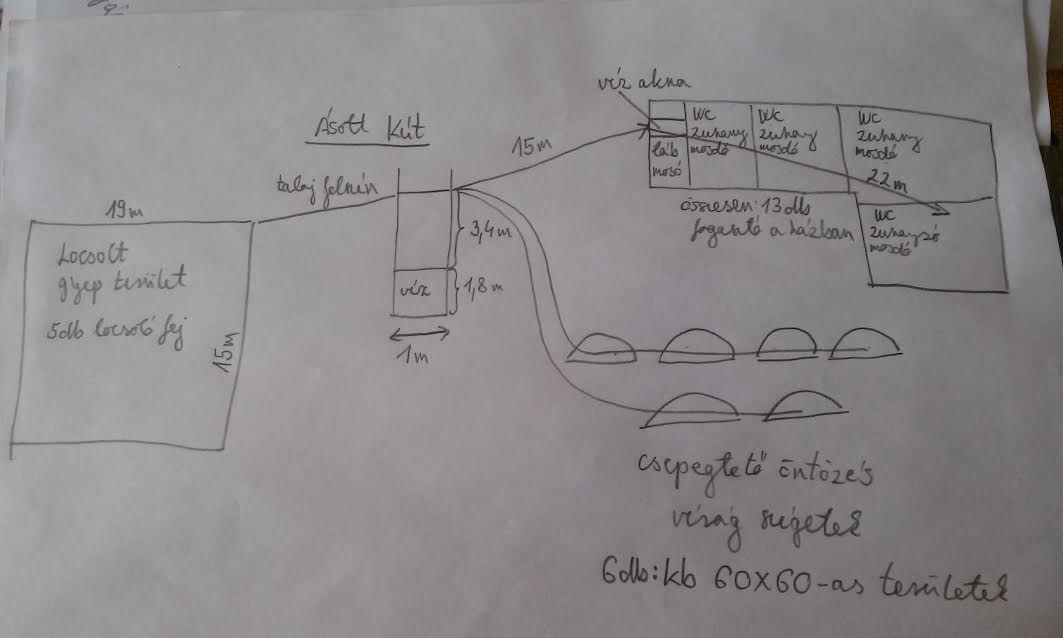 víz akna
Ásott Kút
15m
WC
zuhany
mosdó
WC
zuhany
mosdó
WC
zuhany
mosdó
22m
láb
mosó
talaj felszín
19m
összesen: 13db
fogyasztó a házban
WC
zuhanyzó
mosdó
Locsolt
gyep terület
5db locsoló fej
15m
3,4m
víz
1,8m
1m
csepegtető öntözés
virág szigetek
6db: kb 60x60-as területek